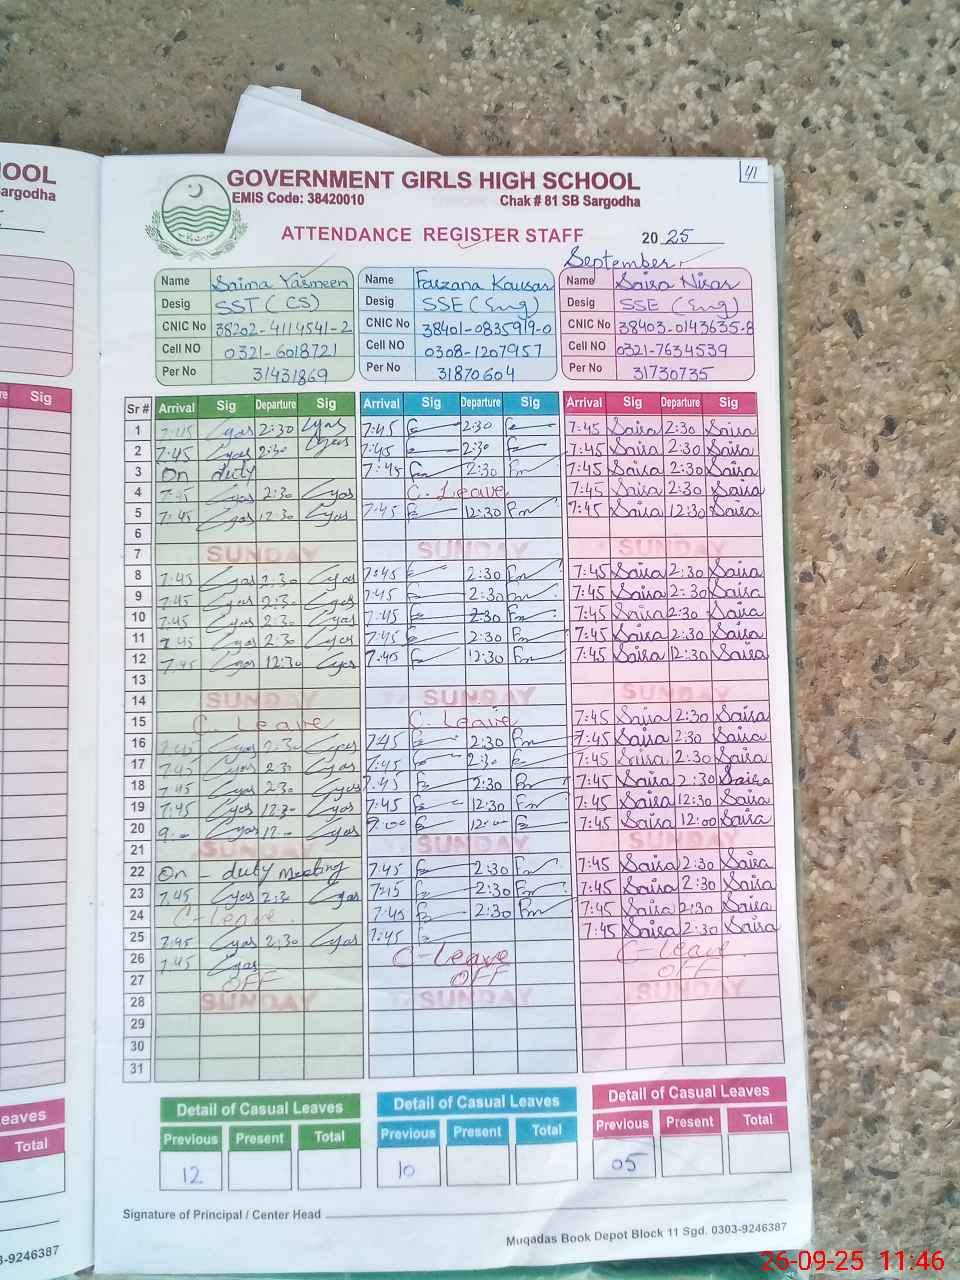 OOL
argodha
GOVERNMENT GIRLS HIGH SCHOOL
41
EMIS Code: 38420010 Chak # 81 SB Sargodha
ATTENDANCE REGISTER STAFF 20 25
September
Name Saima Yasmeen Name Fouzana Kausar Name Saira Nisar
Desig SST (CS) Desig SSE (Eng) Desig SSE (Eng)
CNIC No 38202-4114541-2 CNIC No 38401-0835919-0 CNIC No 38403-0143635-8
Cell NO 0321-6018721 Cell NO 0308-1207957 Cell NO 0321-7634539
Per No 31431869 Per No 31870604 Per No 31730735
Sr # Arrival Sig Departure Sig Arrival Sig Departure Sig Arrival Sig Departure Sig
1 7:45 2:30 7:45 2:30 7:45 Saira 2:30 Saira
2 7:45 2:30 7:45 2:30 7:45 Saira 2:30 Saira
3 On duty 7:45 2:30 7:45 Saira 2:30 Saira
4 7:45 2:30 C. Leave 7:45 Saira 2:30 Saira
5 7:45 12:30 7:45 12:30 7:45 Saira 12:30 Saira
6
7 SUNDAY SUNDAY SUNDAY
8 7:45 2:30 7:45 2:30 7:45 Saira 2:30 Saira
9 7:45 2:30 7:45 2:30 7:45 Saira 2:30 Saira
10 7:45 2:30 7:45 2:30 7:45 Saira 2:30 Saira
11 7:45 2:30 7:45 2:30 7:45 Saira 2:30 Saira
12 7:45 12:30 7:45 12:30 7:45 Saira 12:30 Saira
13
14 SUNDAY SUNDAY SUNDAY
15 C. Leave C. Leave 7:45 Saira 2:30 Saira
16 7:45 2:30 7:45 2:30 7:45 Saira 2:30 Saira
17 7:45 2:30 7:45 2:30 7:45 Saira 2:30 Saira
18 7:45 2:30 7:45 2:30 7:45 Saira 2:30 Saira
19 7:45 12:30 7:45 12:30 7:45 Saira 12:30 Saira
20 9:00 12:00 9:00 12:00 7:45 Saira 12:00 Saira
21 SUNDAY SUNDAY SUNDAY
22 On - duty Meeting 7:45 2:30 7:45 Saira 2:30 Saira
23 7:45 2:30 7:45 2:30 7:45 Saira 2:30 Saira
24 C-leave 7:45 2:30 7:45 Saira 2:30 Saira
25 7:45 2:30 7:45 7:45 Saira 2:30 Saira
26 7:45 C-leave C-leave
27 OFF OFF OFF
28 SUNDAY SUNDAY SUNDAY
29
30
31
Detail of Casual Leaves Detail of Casual Leaves Detail of Casual Leaves
Previous Present Total Previous Present Total Previous Present Total
12 10 05
Signature of Principal / Center Head
Muqadas Book Depot Block 11 Sgd. 0303-9246387
Sig
eaves
Total
3-9246387
26-09-25 11:46